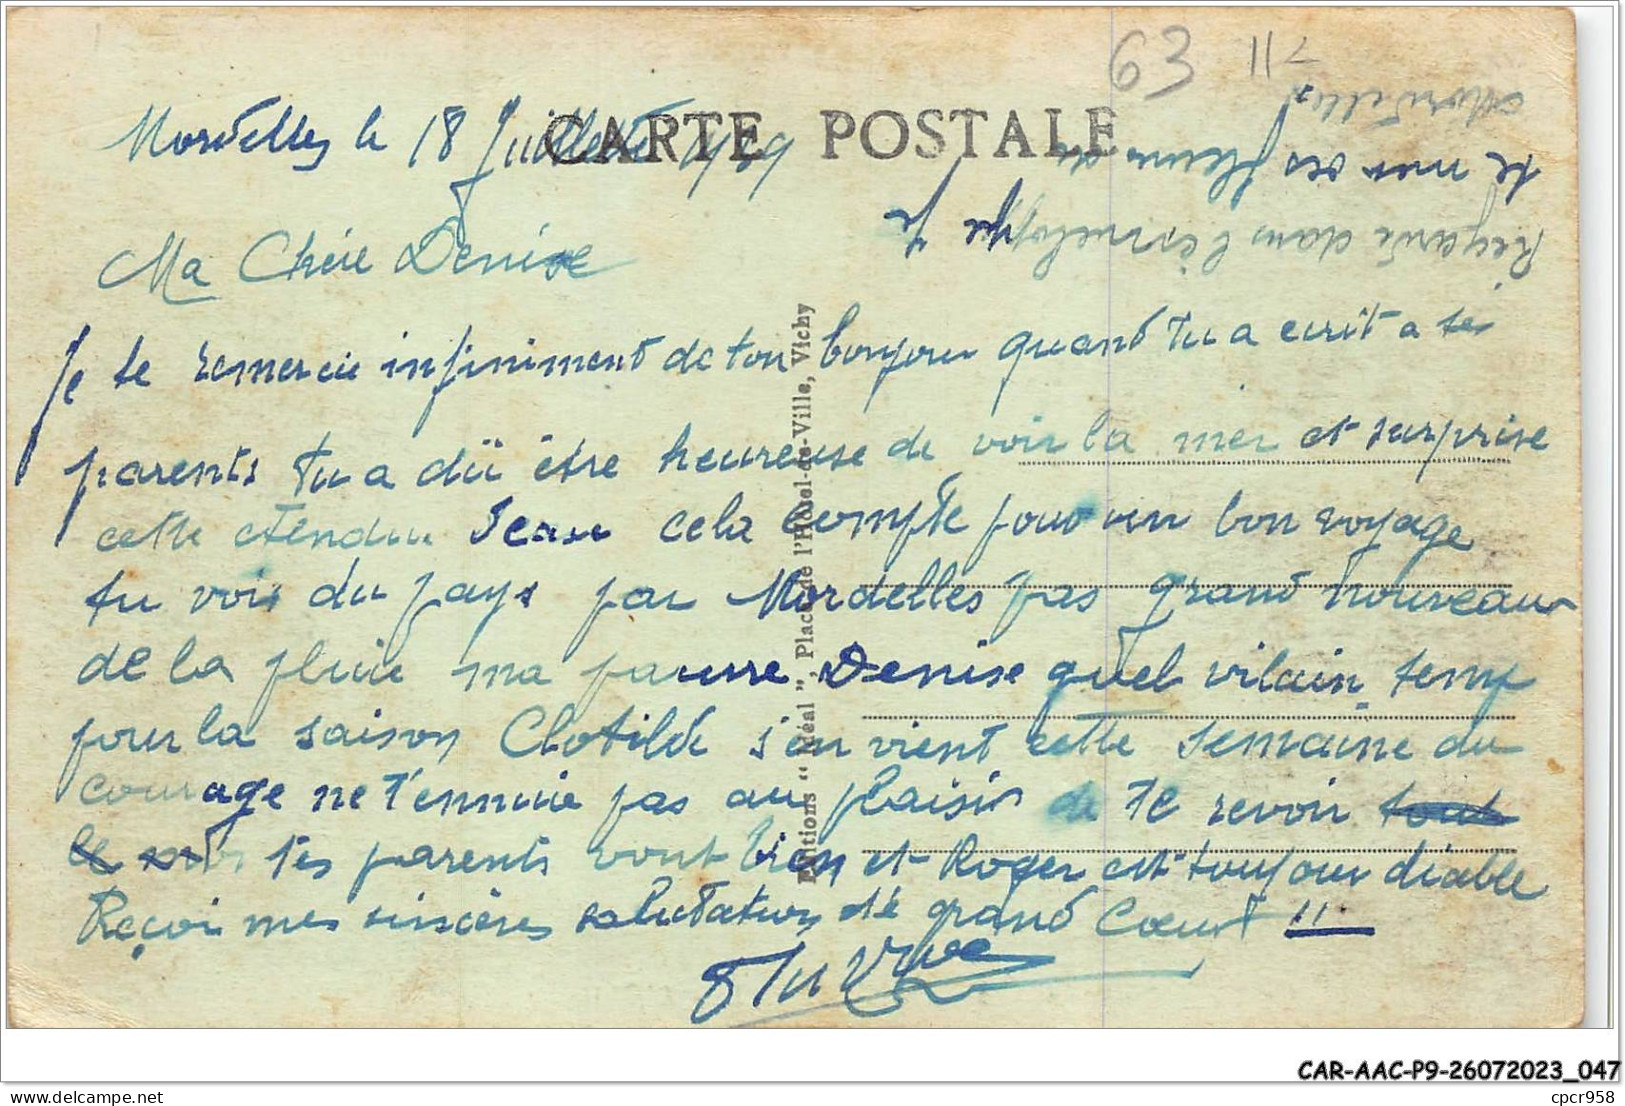 63 112
CARTE POSTALE
Mordelles le 18 Juillette 1939
Ma Chère Denise
Je te remercie infiniment de ton bonjour quand tu a ecrit a tes
parents tu a dû être heureuse de voir la mer et surprise
cette etendue Jeanne cela compte pour un bon voyage
tu vois du pays par Mordelles pas grand nouveau
de la pluie ma pauvre Denise quel vilain temp
pour la saison Clotilde s'en vient cette semaine du
courage ne t'ennuie pas au plaisir de te revoir tout
le tes parents vont bien et Roger est toujour diable
Reçoi mes sincères salutations de grand Coeur !!
Regarde dans l'enveloppe je
te met ses fleurs de
Mordelles
Editions "Idéal", Place de l'Hôtel-de-Ville, Vichy
CAR-AAC-P9-26072023_047
cpcr958